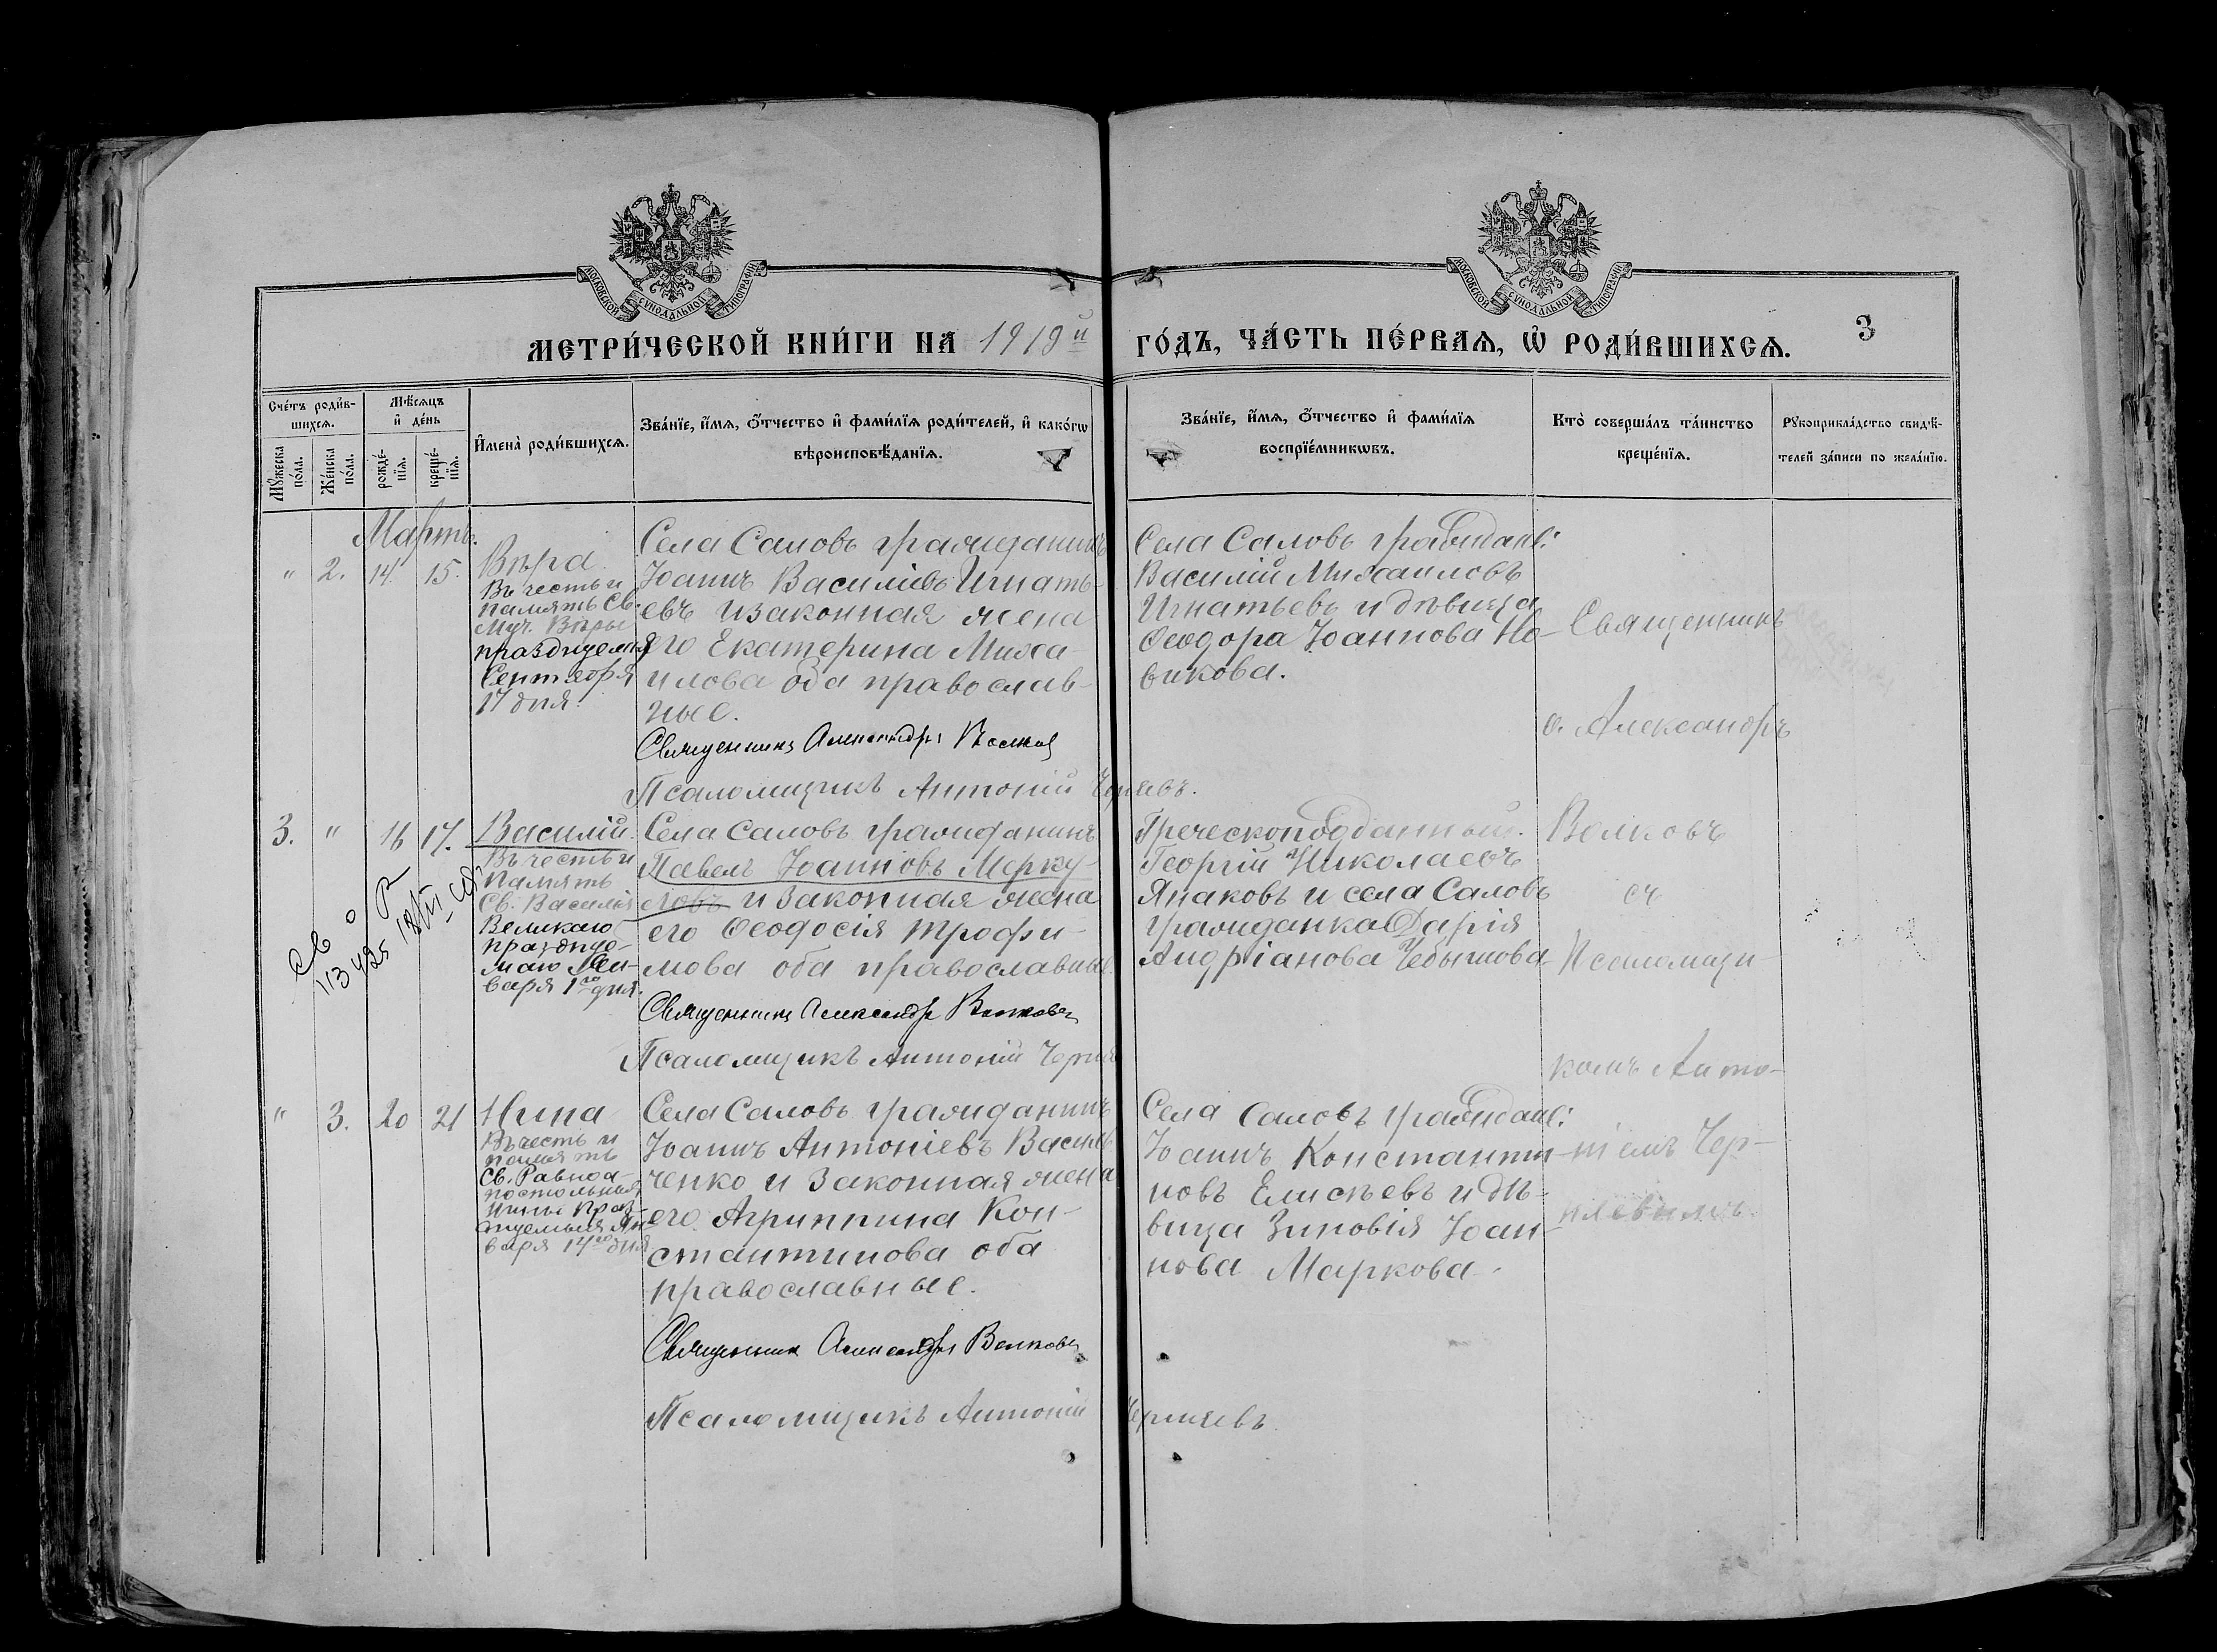 МОСКОВСКОЙ СѴНОДАЛЬНОЙ ТИПОГРАФІИ
МОСКОВСКОЙ СѴНОДАЛЬНОЙ ТИПОГРАФІИ
МЕТРИ́ЧЕСКОЙ КНИ́ГИ НА 1919й ГО́ДЪ, ЧА́СТЬ ПЕ́РВАЯ, Ѡ҆ РОДИ́ВШИХСЯ.
3
Сче́тъ роди́в-
шихся.
Мꙋ́жеска по́ла.
Же́нска по́ла.
Мѣ́сяцъ
и҆ де́нь
рожде́-
нїя.
креще́-
нїя.
И҆мена̀ роди́вшихся.
Зва́нїе, и҆́мя, ѻ҆́тчество и҆ фами́лїя роди́телей, и҆ како́гѡ
вѣроисповѣ́данїя.
Зва́нїе, и҆́мя, ѻ҆́тчество и҆ фами́лїя
воспрїе́мникѡвъ.
Кто̀ соверша́лъ та́инство
креще́нїя.
Рꙋкоприкла́дство свидѣ́-
телей за́писи по жела́нїю.
Мартъ.
" 2. 14. 15.
Вѣра.
Въ честь и
память Св.
Муч. Вѣры
празднуемыя
Сентября
17 дня.
Села Саловъ гражданинъ
Іоаннъ Василіевъ Игнать-
евъ и законная жена
его Екатерина Миха-
илова оба православ-
ные.
Священникъ Александръ Волковъ
Псаломщикъ Антоній Черняевъ.
Села Саловъ граждан.:
Василій Михаиловъ
Игнатьевъ и дѣвица
Ѳеодора Іоаннова Но-
викова.
Священникъ
о. Александръ
3. " 16 17.
Василій.
Въ честь и
память
Св. Василія
Великаго
праздну-
маго Ян-
варя 1го дня.
113425
Села Саловъ гражданинъ
Павелъ Іоанновъ Мерку-
ловъ и законная жена
его Ѳеодосія Трофи-
мова оба православные.
Священникъ Александръ Волковъ
Псаломщикъ Антоній Черняе
Греческоподданный.
Георгій Николаевъ
Янаковъ и села Саловъ
гражданка Дарія
Андріанова Чебышова
Волковъ
съ
Псаломщи-
комъ Анто-
" 3. 20 21
Нина
Въ честь и
память
Св. Равноа-
постольныя
Нины праз-
днуемыя Ян-
варя 14го дня
Села Саловъ гражданинъ
Іоаннъ Антоніевъ Василь-
ченко и законная жена
его Агриппина Кон-
стантинова оба
православные.
Священникъ Александръ Волковъ
Псаломщикъ Антоній Черняевъ
Села Саловъ граждан.:
Іоаннъ Константи-
новъ Елисѣевъ и дѣ-
вица Зиновія Іоан-
нова Маркова.
ніемъ Чер-
няевымъ.